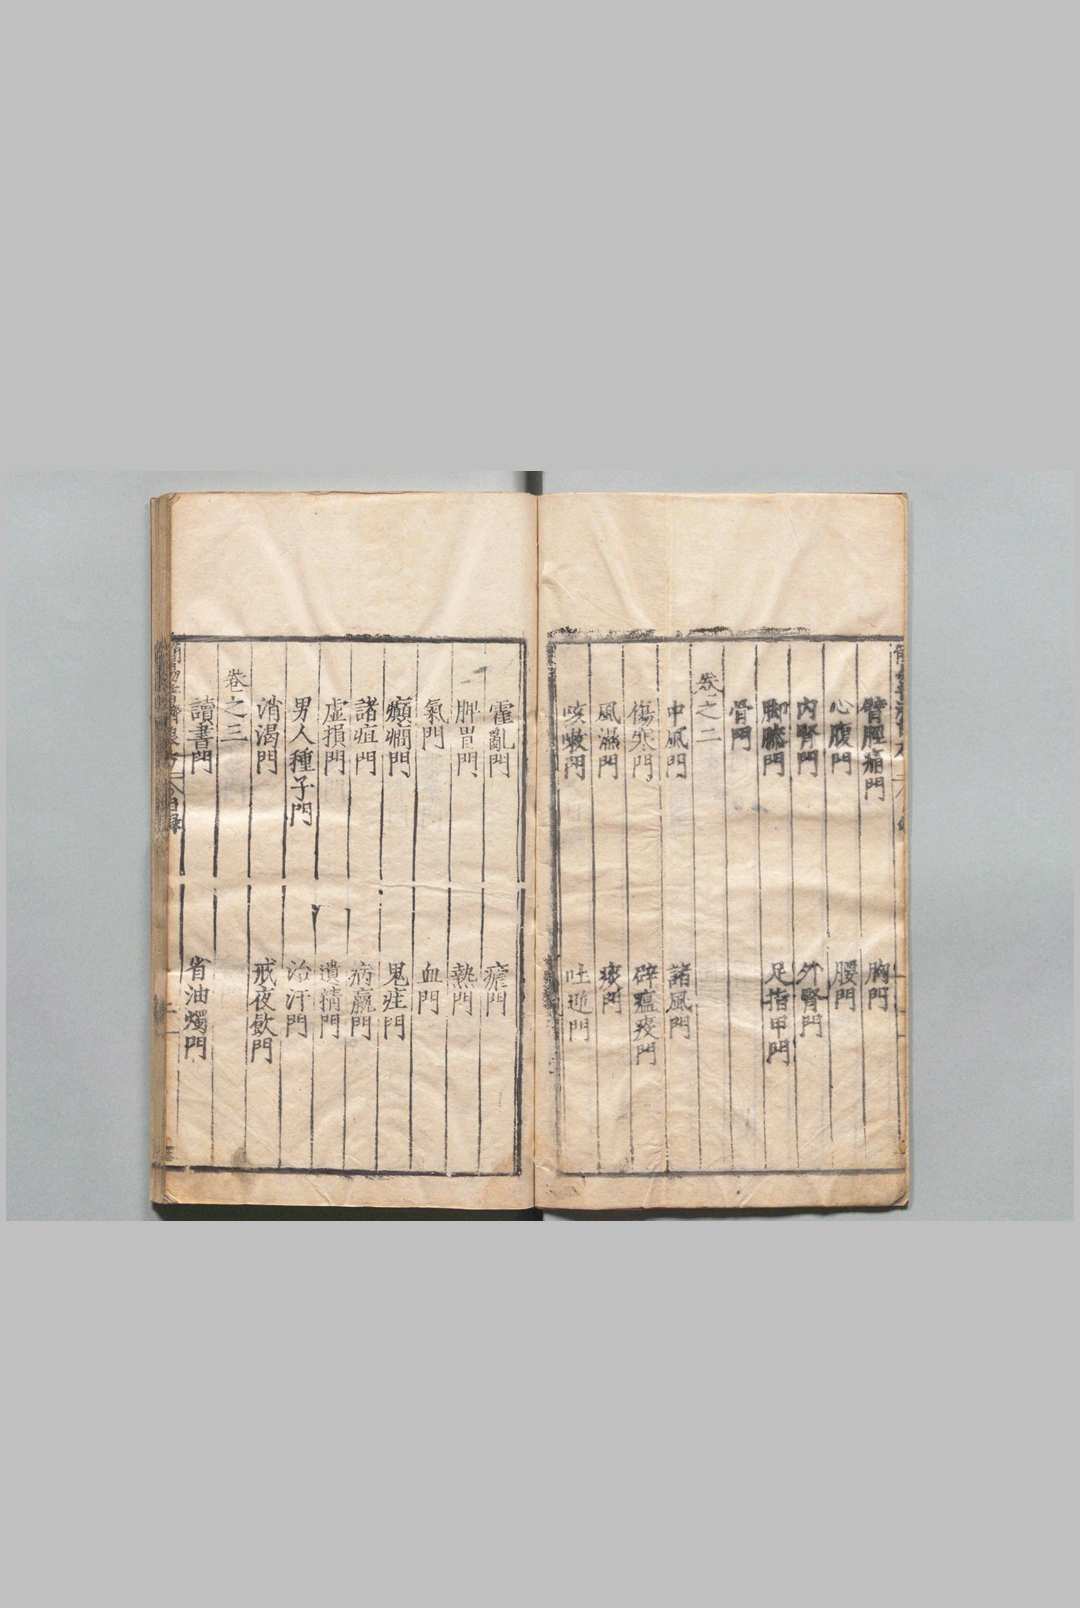 臂腰痛門　胸門
心腹門　腰門
內腎門　外腎門
脚膝門　足指甲門
骨門
卷之二
中風門　諸風門
傷寒門　辟瘟疫門
風濕門　痰門
咳嗽門　吐逆門
霍亂門　瘧門
脾胃門　熱門
氣門　血門
癲癇門　鬼疰門
諸疸門　病羸門
虛損門　遺精門
男人種子門　治汗門
消渴門　戒夜飲門
卷之三
讀書門　省油燭門
簡易普濟良方　目錄